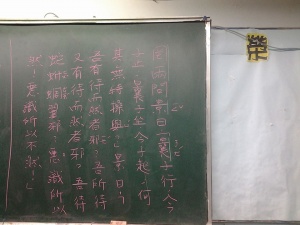 罔兩問景曰「曩子行今
子止,曩子坐今子起,何
其無特操與」景曰「
吾有待而然者邪?吾所待
又有待而然者邪?吾待
蛇蚹蜩翼邪?惡識所以
然!惡識所以不然!」